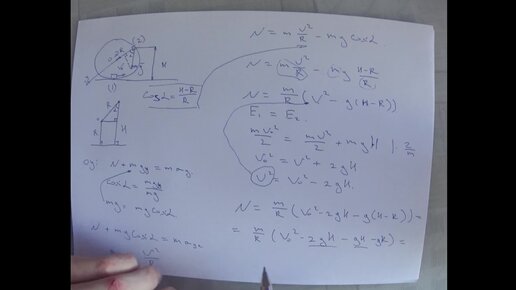 (2)
R
H
(1)
cos α = (H-R)/R
R
H
Oy: N + mgy = m aцс.
cos α = mgy/mg
mgy = mg cos α.
N + mg cos α = m aцс
V²/R
N = m V²/R - mg cos α.
N = m V²/R - mg (H-R)/R
N = m/R (V² - g(H-R))
E₁ = E₂.
mV₀²/2 = mV²/2 + mgH | · 2/m
V₀² = V² + 2gH
V² = V₀² - 2gH.
N = m/R (V₀² - 2gH - g(H-R)) =
= m/R (V₀² - 2gH - gH - gR) =